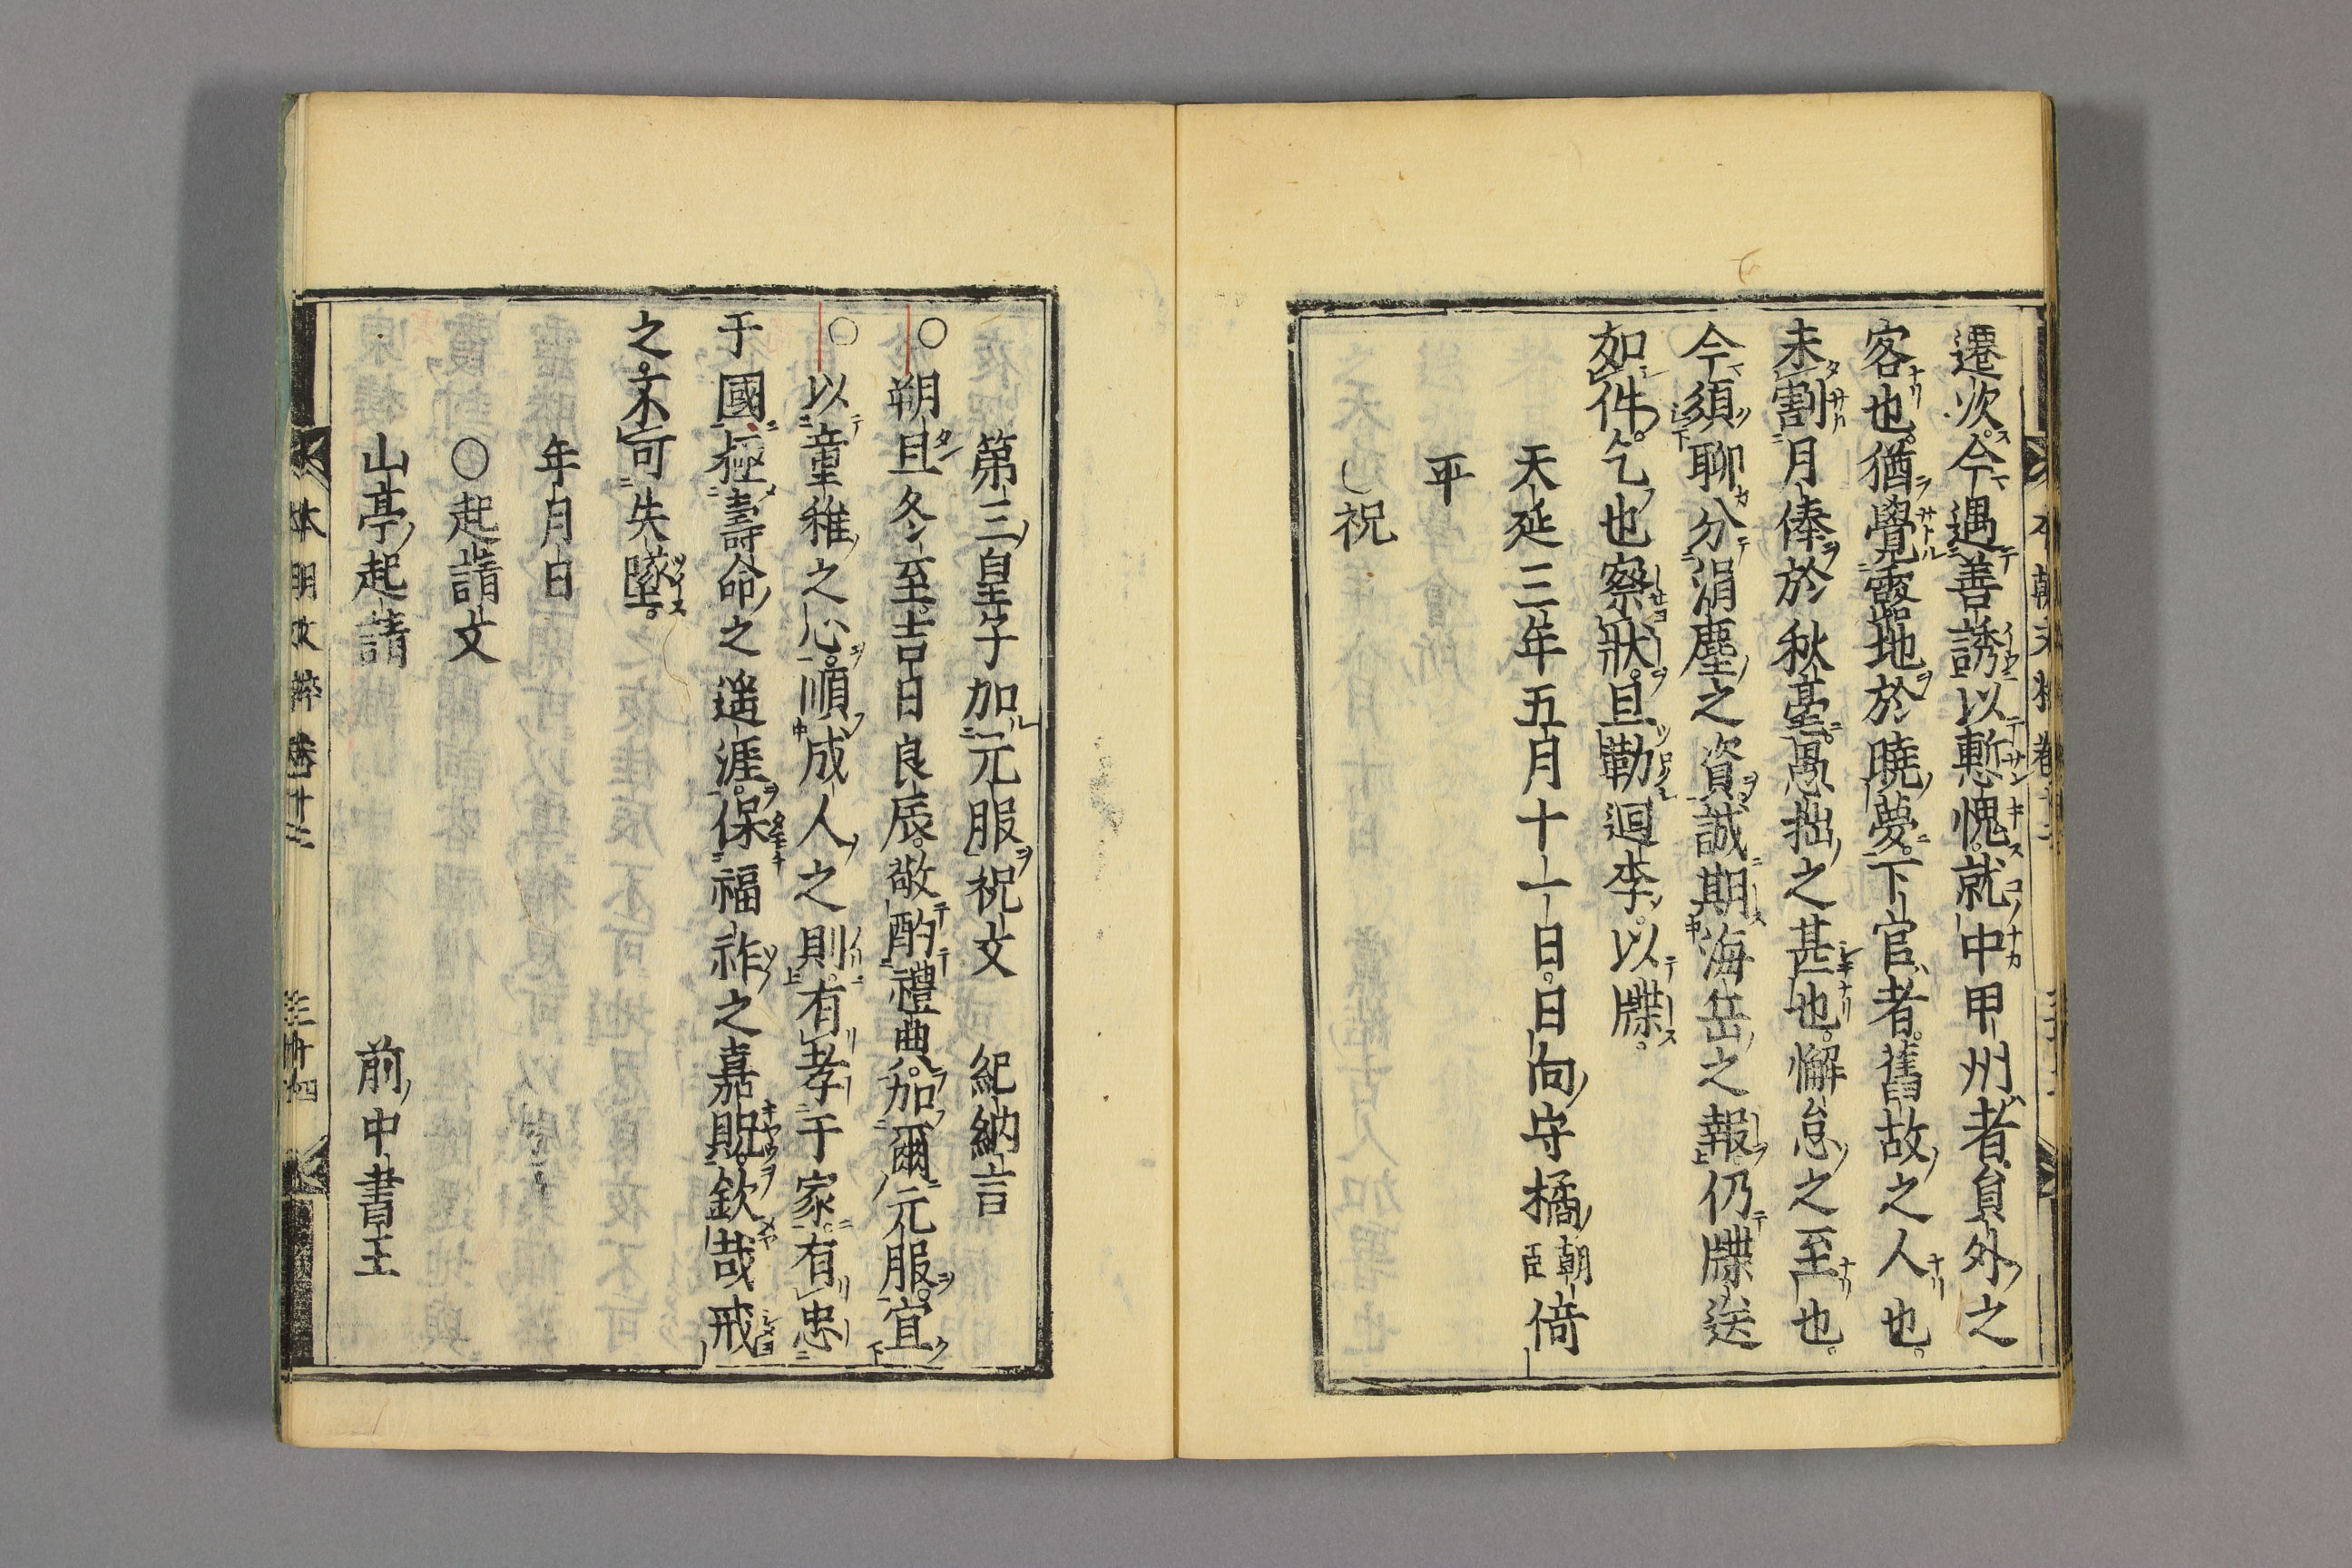 遷次今遇善誘以慙愧就中甲州者員外之
客也猶覺靈地於曉夢下官者舊故之人也
未割月俸於秋毫愚拙之甚也懈怠之至也
今須聊分涓塵之資誠期海岳之報仍牒送
如件乞也察狀且勒迴李以牒
天延三年五月十一日日向守橘朝臣倚
平
祝
第三皇子加元服祝文 紀納言
○朔旦冬至吉日良辰敬酌禮典加爾元服宜
○以童稚之心順成人之則有孝于家有忠
于國極壽命之遙涯保福祚之嘉貺欽哉戒
之不可失墜
年月日
○起請文
山亭起請 前中書王
本朝文粹 卷十三 三十四